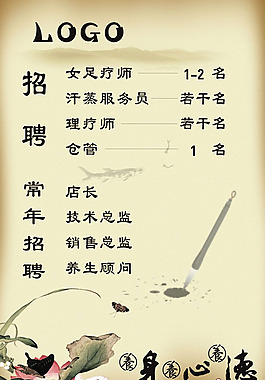 LOGO
招聘
女足疗师 1-2 名
汗蒸服务员 若干名
理疗师 若干名
仓管 1 名
常年招聘
店长
技术总监
销售总监
养生顾问
养身养心养德